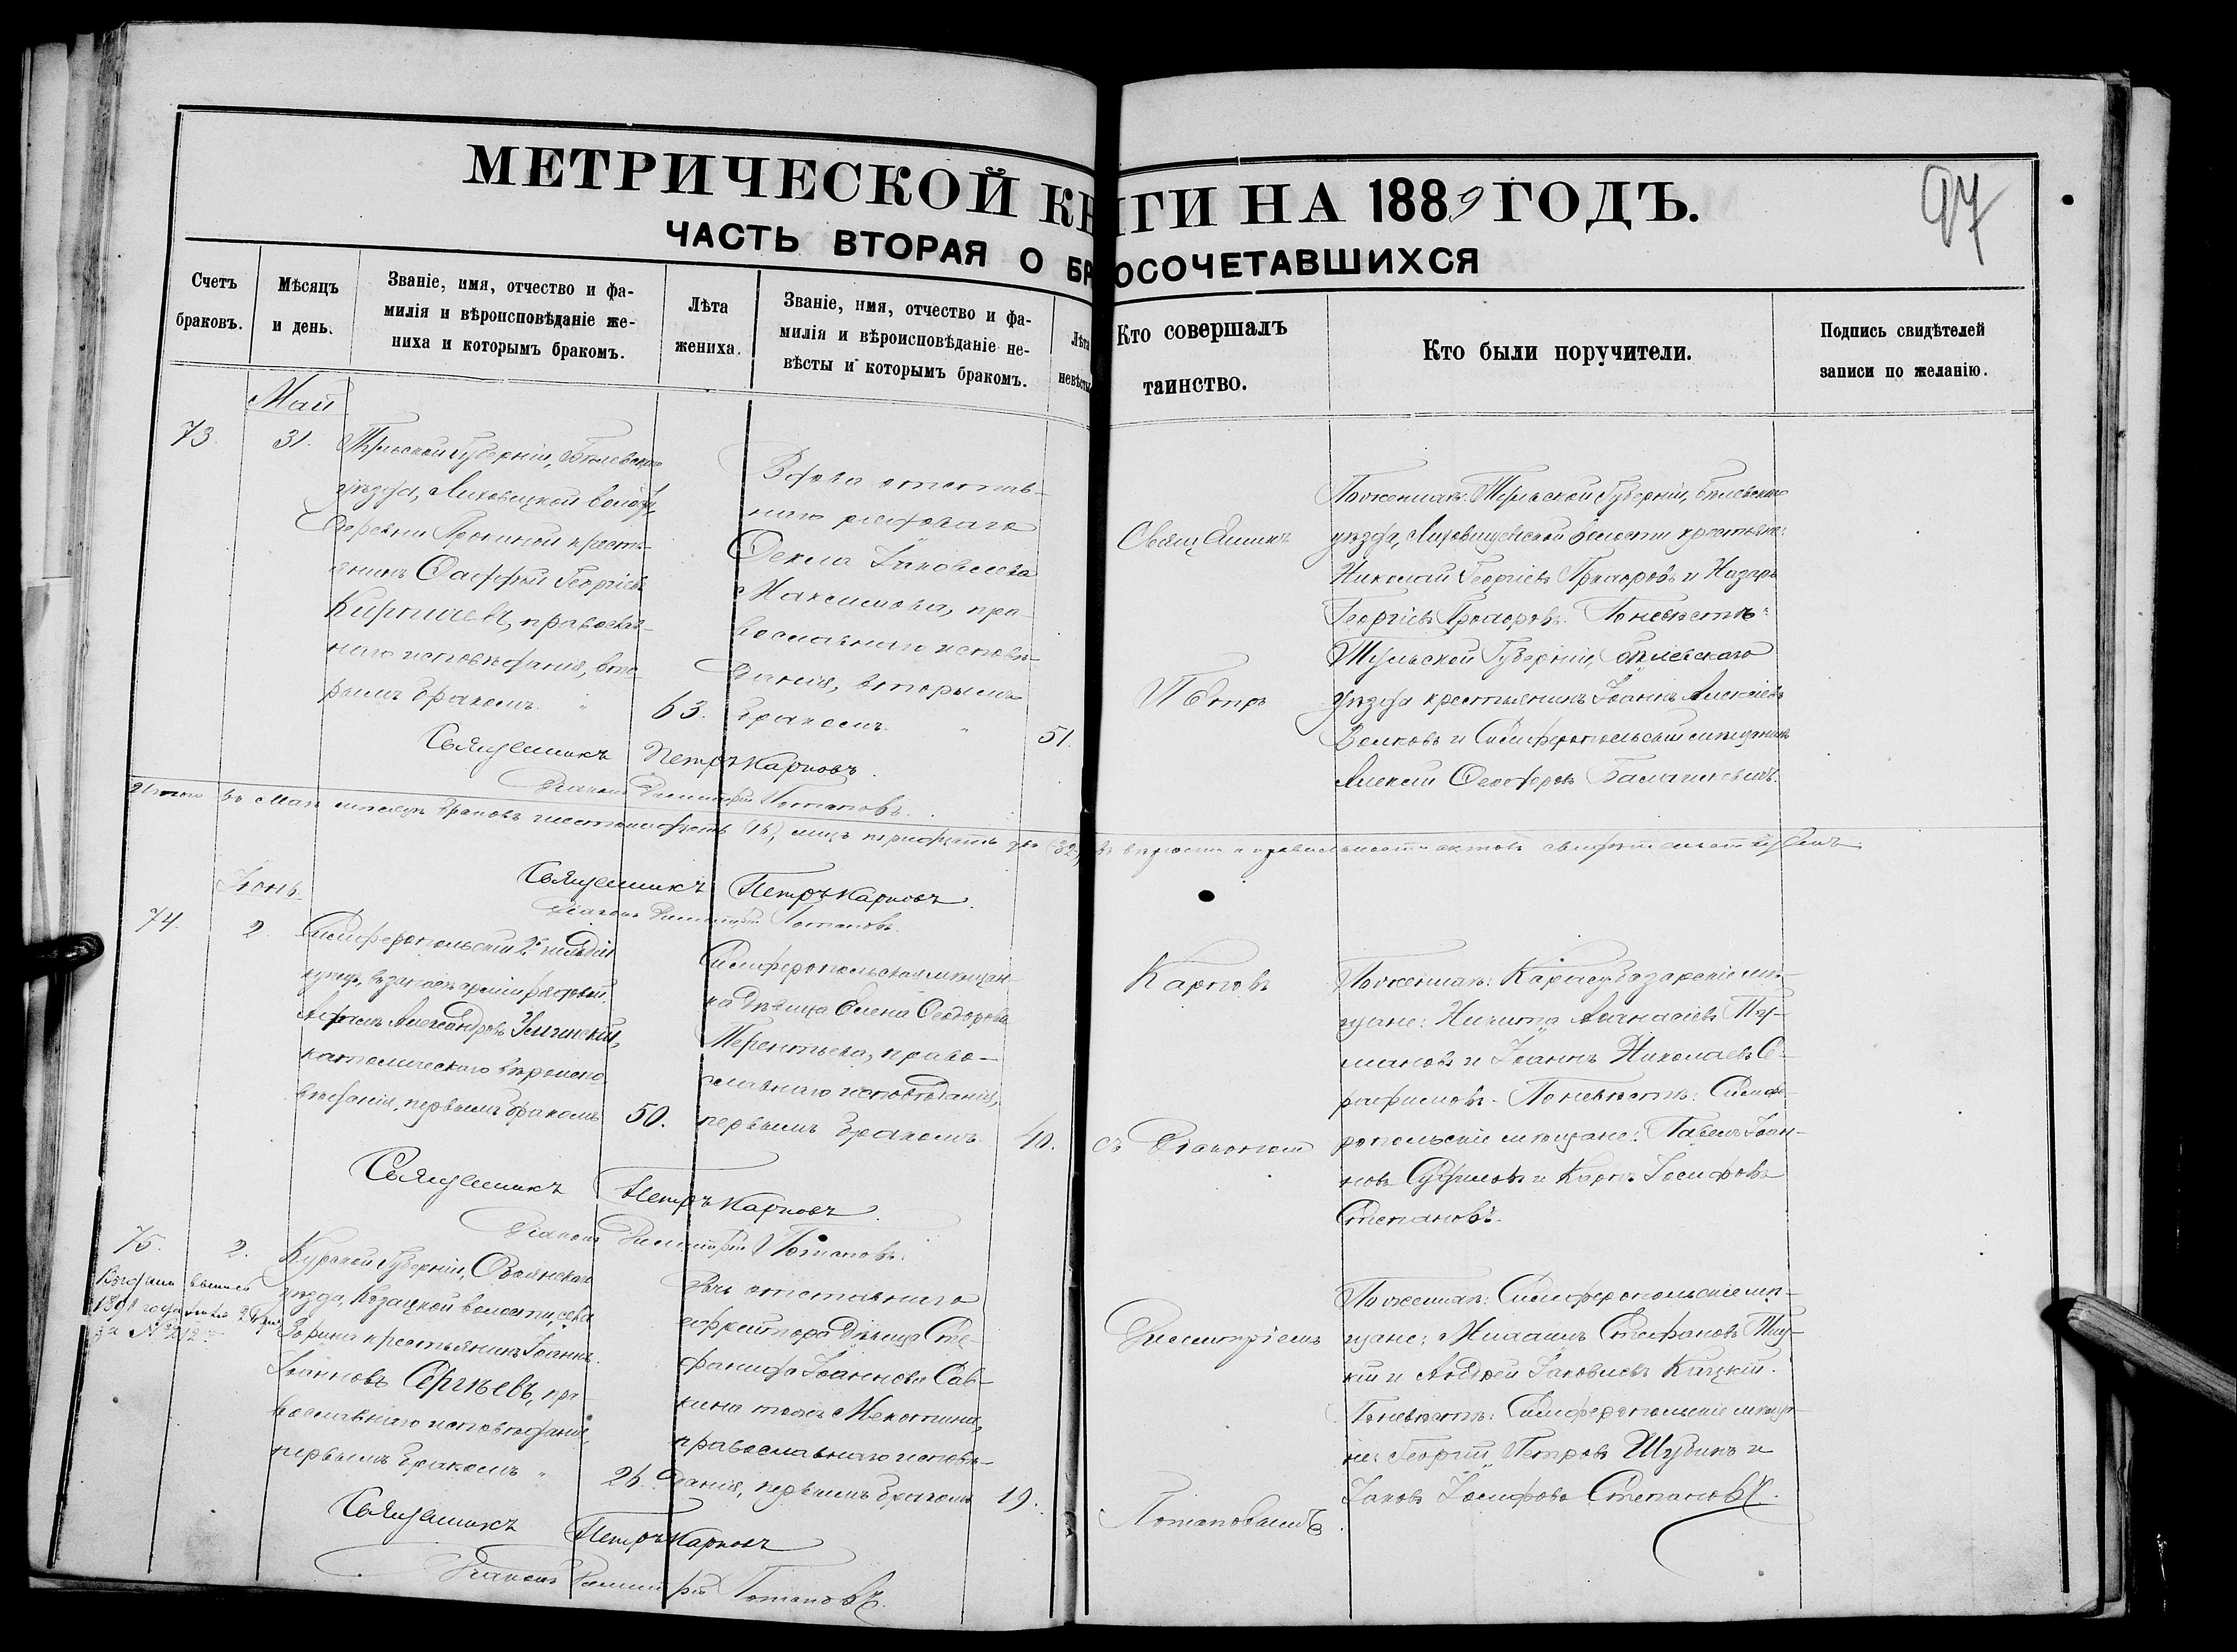 МЕТРИЧЕСКОЙ КНИГИ НА 1889 ГОДЪ.
97
ЧАСТЬ ВТОРАЯ О БРАКОСОЧЕТАВШИХСЯ
Счетъ
браковъ.
Мѣсяцъ
и день.
Званіе, имя, отчество и фа-
милія и вѣроисповѣданіе же-
ниха и которымъ бракомъ.
Лѣта
жениха.
Званіе, имя, отчество и фа-
милія и вѣроисповѣданіе не-
вѣсты и которымъ бракомъ.
Лѣта
невѣсты
Кто совершалъ
таинство.
Кто были поручители.
Подпись свидѣтелей
записи по желанію.
Май
73.
31.
Тульской Губерніи, Бѣлевскаго
уѣзда,
деревни крестья-
янинъ Георгіевъ
православ-
наго исповѣданія, вто-
рымъ бракомъ.
63.
Вдова отстав-
наго рядоваго
Ѳекла Іаковлева
Максимова, пра-
вославнаго исповѣ-
данія, вторымъ
бракомъ.
51.
Священникъ
Петръ
По женихѣ: Тульской Губерніи, Бѣлевскаго
уѣзда, волости крестьяне:
Николай Георгіевъ и Назаръ
Георгіевъ По невѣстѣ:
Тульской Губерніи, Бѣлевскаго
уѣзда крестьянинъ Іоаннъ Алексіевъ
Волковъ и Симферопольскій мѣщанинъ
Алексій
Священникъ Петръ Карповъ.
Діаконъ Димитрій Потаповъ.
Итого въ Маѣ мѣсяцѣ браковъ шестнадцать (16), лицъ тридцать два (32), въ вѣрности и правильности актовъ свидѣтельствуемъ
Священникъ Петръ Карповъ.
Діаконъ Димитрій Потаповъ.
Іюнь.
74.
2.
Симферопольскій 2й гильдіи
купецъ,
Александровъ
католическаго вѣроиспо-
вѣданія, первымъ бракомъ
50.
Симферопольская мѣщан-
ка дѣвица Елена Ѳеодорова
Терентьева, право-
славнаго исповѣданія,
первымъ бракомъ.
40.
Карповъ
съ Діакономъ
По женихѣ: Карасубазарскіе мѣ-
щане: Никита Аѳанасіевъ Ту-
мановъ и Іоаннъ Николаевъ Се-
рафимовъ. По невѣстѣ: Симфе-
ропольскіе мѣщане: Павелъ Іоан-
новъ и Карпъ Іосифовъ
Степановъ.
Священникъ Петръ Карповъ.
Діаконъ Димитрій Потаповъ.
75.
2.
выпись
1891 года
за № 212
Курской Губерніи, Обоянскаго
уѣзда, Казацкой волости, села
Зорина крестьянинъ Іоаннъ
Іоанновъ Сергѣевъ, пра-
вославнаго исповѣданія,
первымъ бракомъ
26.
Дочь отставнаго
ефрейтора дѣвица Сте-
фанида Іоаннова Сав-
кина тожъ Мекотина,
православнаго исповѣ-
данія, первымъ бракомъ
19.
Димитріемъ
Потаповымъ
По женихѣ: Симферопольскіе мѣ-
щане: Михаилъ Стефановъ
и Андрей Іаковлевъ
По невѣстѣ: Симферопольскіе мѣща-
не: Георгій Петровъ Шубинъ и
Іаковъ Іосифовъ Степановъ.
Священникъ Петръ Карповъ
Діаконъ Димитрій Потаповъ.